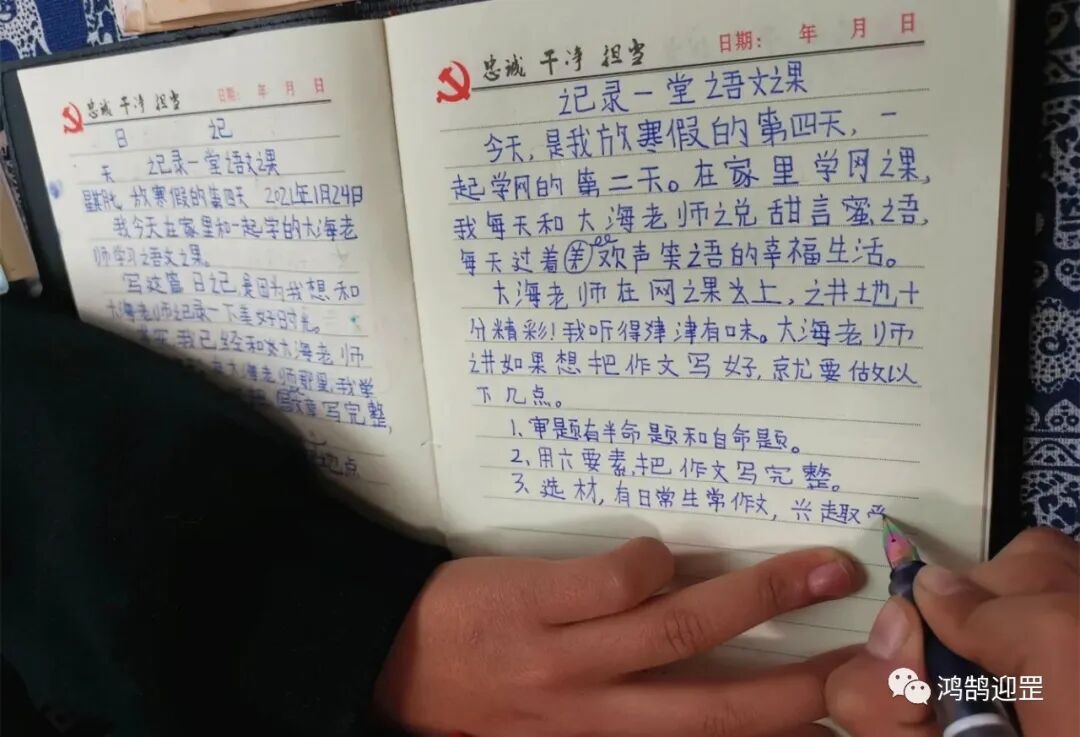 忠诚 干净 担当
日期： 年 月 日
日 记
天 记录一堂语文课
放寒假的第四天 2021年1月24日
我今天在家里和一起学的大海老
师学习语文课。
写这篇日记,是因为我想和
大海老师记录一下美好时光。
我已经和大海老师
大海老师那里,我学
写完整,
点
忠诚 干净 担当
日期： 年 月 日
记录一堂语文课
今天,是我放寒假的第四天,一
起学网的第二天。在家里学网课,
我每天和大海老师说甜言蜜语,
每天过着欢声笑语的幸福生活。
大海老师在网课上,讲地十
分精彩!我听得津津有味。大海老师
讲如果想把作文写好,就要做以
下几点。
1、审题有半命题和自命题。
2、用六要素,把作文写完整。
3、选材,有日常生常作文,兴趣
鸿鹄迎罡